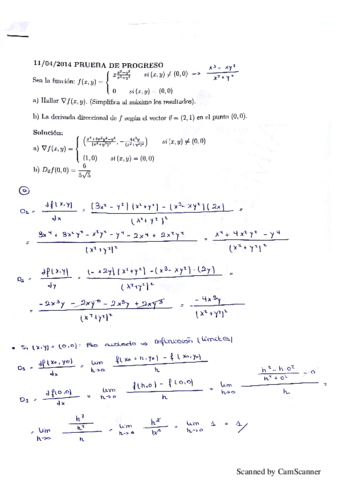 11/04/2014 PRUEBA DE PROGRESO
Sea la función: f(x, y) = { x (x²−y²)/(x²+y²) si (x, y) ≠ (0,0) → (x³ − xy²)/(x²+y²)
0 si (x, y) = (0,0)
a) Hallar ∇f(x, y). (Simplifica al máximo los resultados).
b) La derivada direccional de f según el vector v = (2, 1) en el punto (0, 0).
Solución:
a) ∇f(x, y) = { ((x⁴+4x²y²−y⁴)/(x²+y²)², −4x³y/(x²+y²)²) si (x, y) ≠ (0,0)
(1, 0) si (x, y) = (0,0)
b) f(0,0) = 6/(5√5)
a
= df(x,y)/dx = ((3x² − y²)(x²+y²) − (x³−xy²)(2x))/(x²+y²)²
= (3x⁴ + 3x²y² − x²y² − y⁴ − 2x⁴ + 2x²y²)/(x²+y²)² = (x⁴ + 4x²y² − y⁴)/(x²+y²)²
= df(x,y)/dy = ((−2xy)(x²+y²) − (x³−xy²)·(2y))/(x²+y²)²
= (−2x³y − 2xy³ − 2x³y + 2xy³)/(x²+y²)² = −4x³y/(x²+y²)²
• Si (x,y) = (0,0): definición (límites)
D₁ = df(x₀,y₀)/dx = lim h→0 (f(x₀+h, y₀) − f(x₀,y₀))/h
D₁ = df(0,0)/dx = lim h→0 (f(h,0) − f(0,0))/h = lim h→0 ((h³ − h·0²)/(h²+0²) − 0)/h =
= lim h→0 (h³/h²)/h = lim h→0 h³/h³ = lim h→0 1 = 1
Scanned by CamScanner